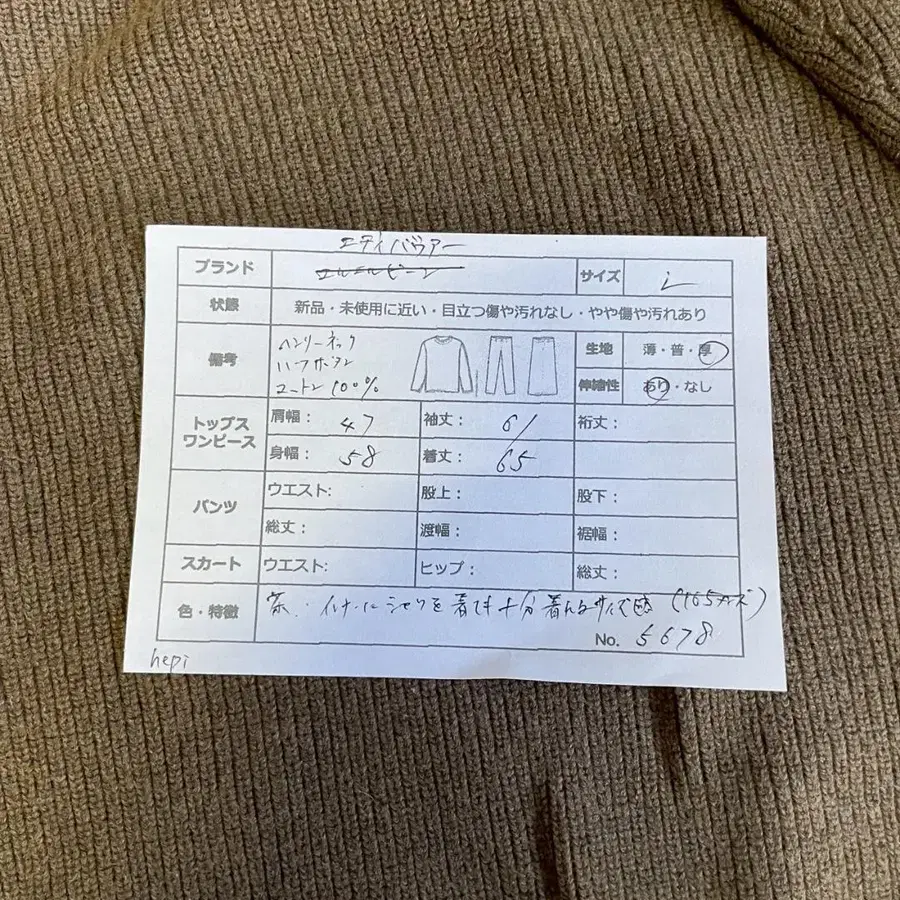 エディバウアー
ブランド エルエルビーン サイズ L
状態 新品・未使用に近い・目立つ傷や汚れなし・やや傷や汚れあり
備考 ヘンリーネック
ハーフボタン
コットン100%
生地 薄・普・厚
伸縮性 あり・なし
トップス
ワンピース
肩幅： 47 袖丈： 61 裄丈：
身幅： 58 着丈： 65
パンツ
ウエスト: 股上： 股下：
総丈： 渡幅： 裾幅：
スカート ウエスト: ヒップ： 総丈：
色・特徴 茶・インナーにシャツを着ても十分着れるサイズ感
No. 5678
hepi